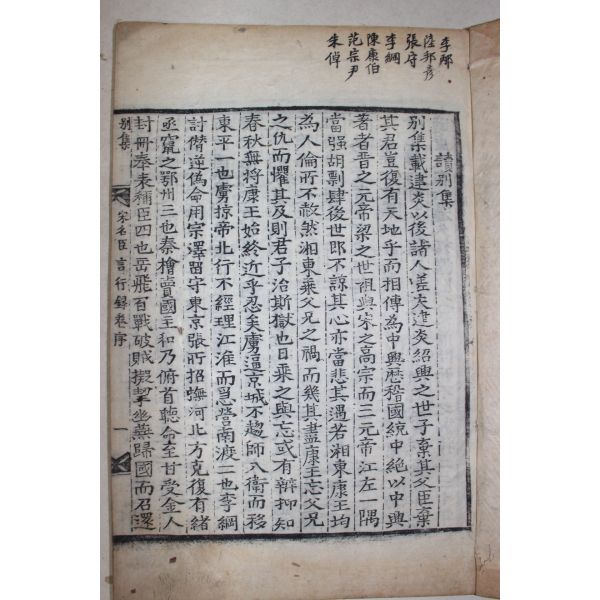 李邴
陸邦彦
張守
李綱
陳康伯
范宗尹
朱倬
讀别集
别集載建炎以後諸人㦲夫建炎紹興之世子棄其父臣棄
其君豈復有天地乎而相傳為中興歷稽國統中絶以中興
著者晋之元帝梁之世祖與宋之高宗而三元帝江左一隅
當强胡剽肆後世郎不諒其心亦當悲其遇若湘東康王均
為人倫所不赦然湘東乘父兄之禍而幾其盡康王忘父兄
之仇而懼其及則君子治斯獄也曰乘之與忘或有辨抑知
春秋無將康王始終近乎忍矣虜逼京城不趨師入衛而移
東平一也虜掠帝北行不經理江淮而急營南渡二也李綱
討僭逆偽命用宗澤留守東京張所招撫河北方克復有緒
丞竄之鄂州三也秦檜賣國主和乃俯首聽命至甘受金人
封冊奉表稱臣四也岳飛百戰破賊擬挈幽燕歸國而召還
别集
宋名臣言行錄卷序
一